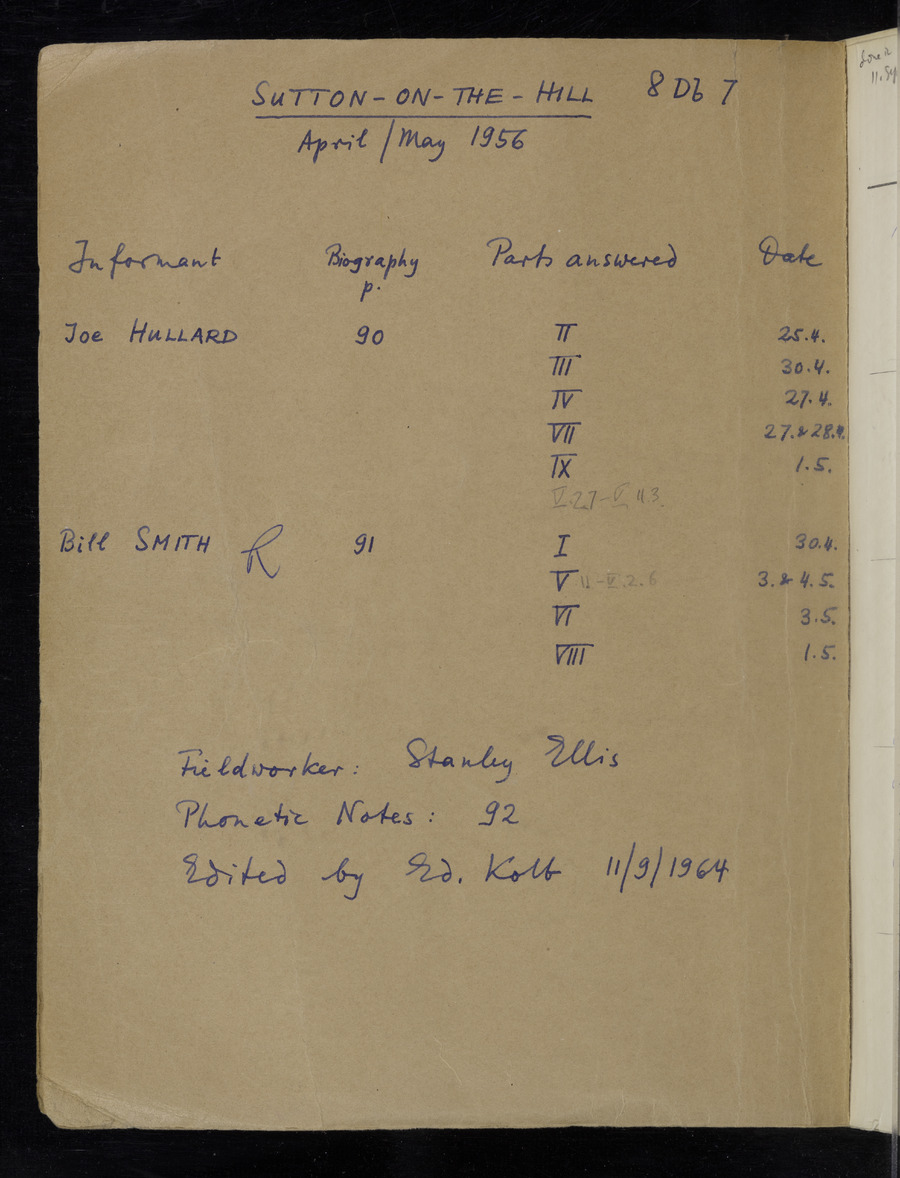 SUTTON-ON-THE-HILL 8 Db 7
April / May 1956
Informant Biography p. Parts answered Date
Joe HULLARD 90 II 25.4.
III 30.4.
IV 27.4.
VII 27. & 28.4.
IX 1.5.
Bill SMITH R 91 I 30.4.
V 3. & 4.5.
VI 3.5.
VIII 1.5.
Fieldworker: Stanley Ellis
Phonetic Notes: 92
Edited by Ed. Kolb 11/9/1964